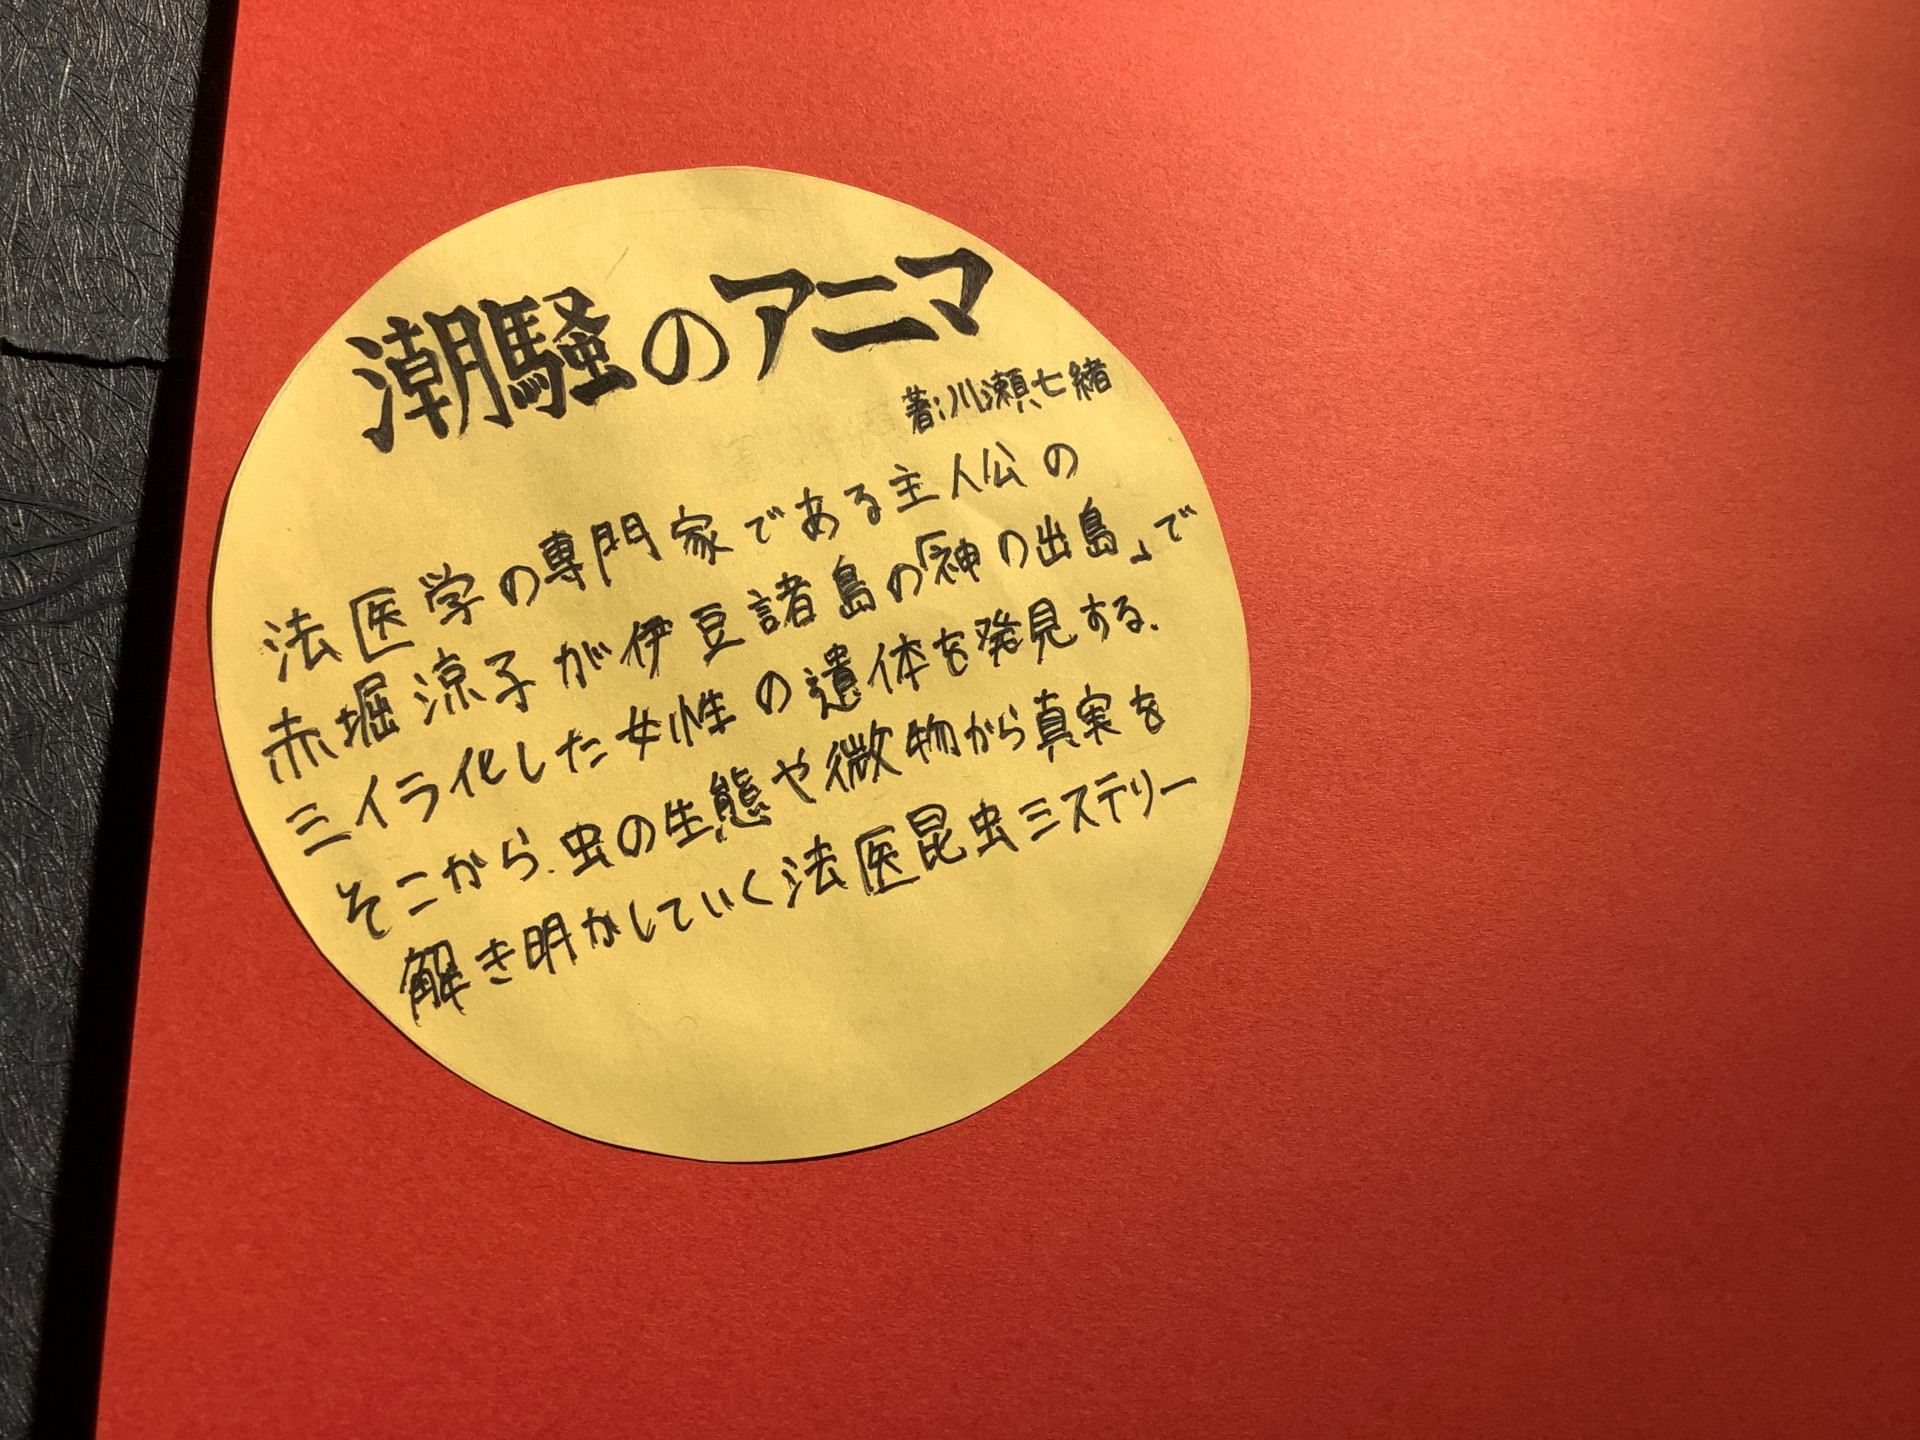 潮騒のアニマ
著:川瀬七緒
法医学の専門家である主人公の
赤堀涼子が伊豆諸島の「神の出島」で
ミイラ化した女性の遺体を発見する.
そこから.虫の生態や微物から真実を
解き明かしていく法医昆虫ミステリー